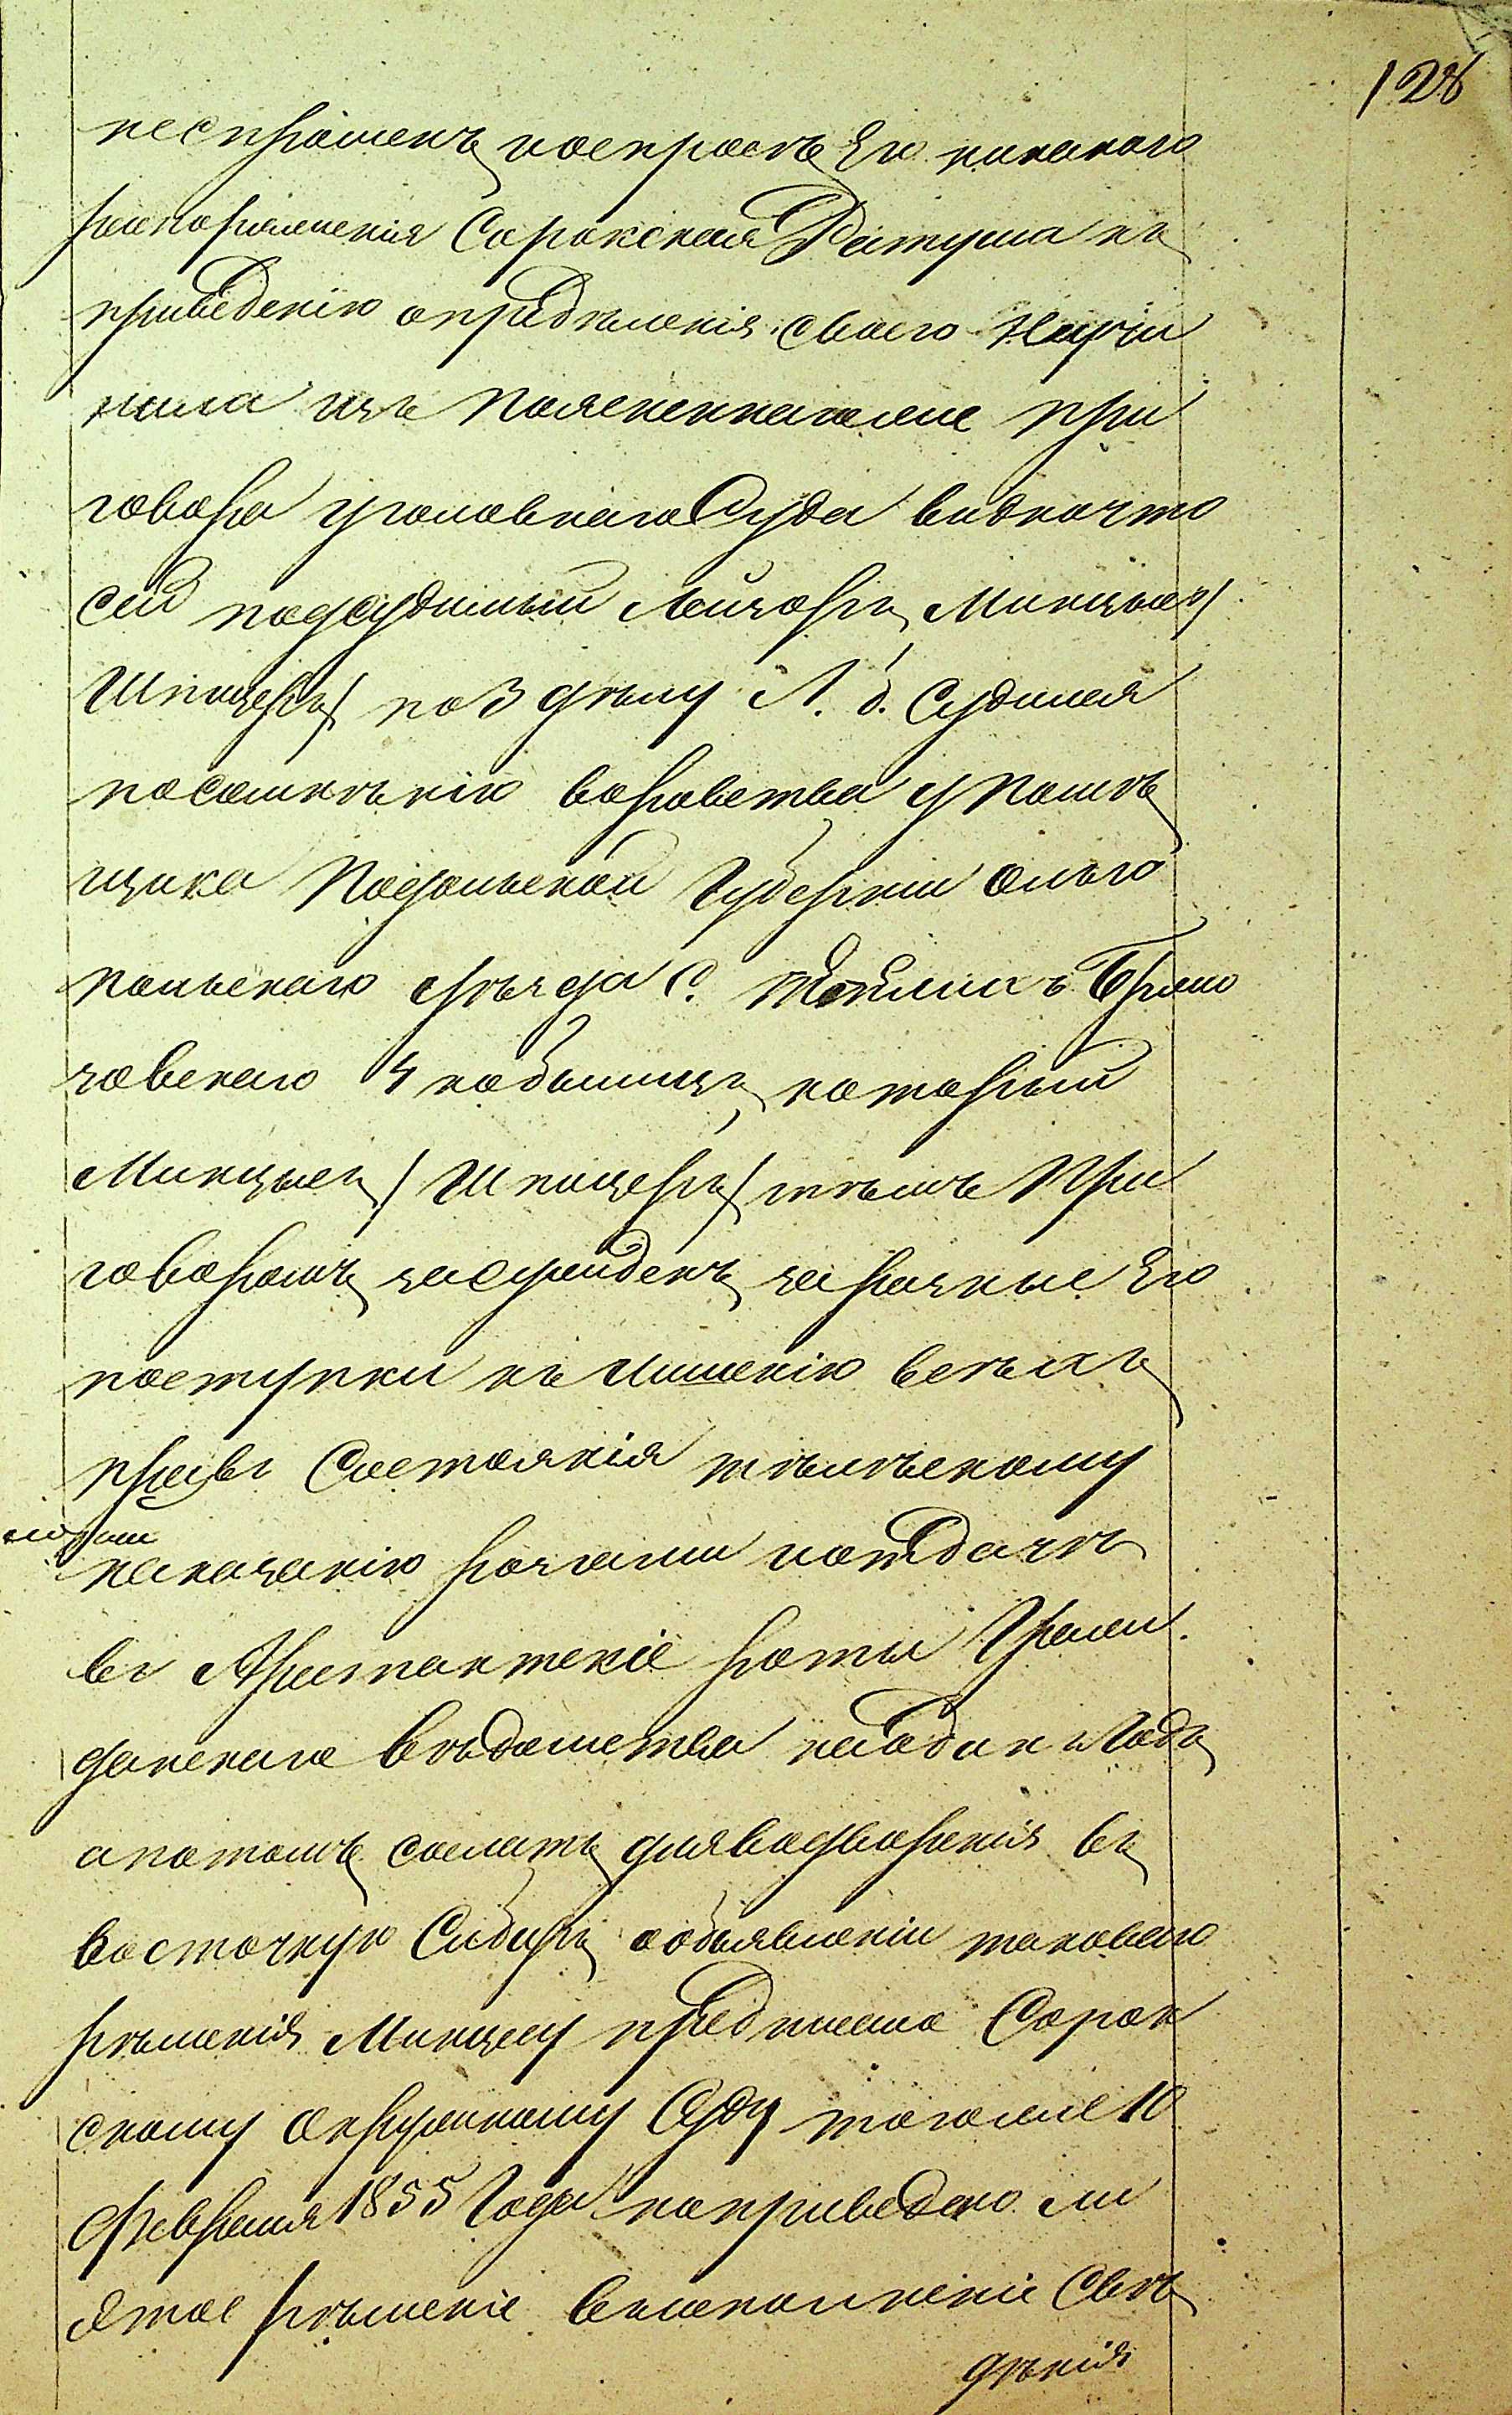 128
неспрошенъ, и о спросѣ Его никакого
распоряженія Сорокская Ратуша къ
приведенію опредѣленія своего Неучи
нила изъ Поясненнагоже При
говора Уголовнаго Суда видночто
сей подсудимый Лейзоръ Минцыс /
Шпицеръ / по 3 дѣлу Л. б. Судился
по сомнѣнію воровства у Помѣ
щика Подольской Губерніи Ольго
польскаго уѣзда С.
човскаго 4 кобылицъ, который
Минцыс / Шпицеръ / тѣмъ При
говоромъ засужденъ, за разные Его
поступки къ лишенію всѣхъ
правъ Состоянія тѣлѣсному
наказанію розгами и отдачѣ
въ Арестантскіе роты Граж
данскаго вѣдомства на Одинъ Годъ
а потомъ сослать для водворенія въ
восточную Сибирь, о объявленіи таковаго
рѣшенія Минцесу предписано Сорок
скому Окружному Суду тогоже 10
Февраля 1855 Года но приведено ли
Этое рѣшеніе в исполненіе Свѣ
дѣнія